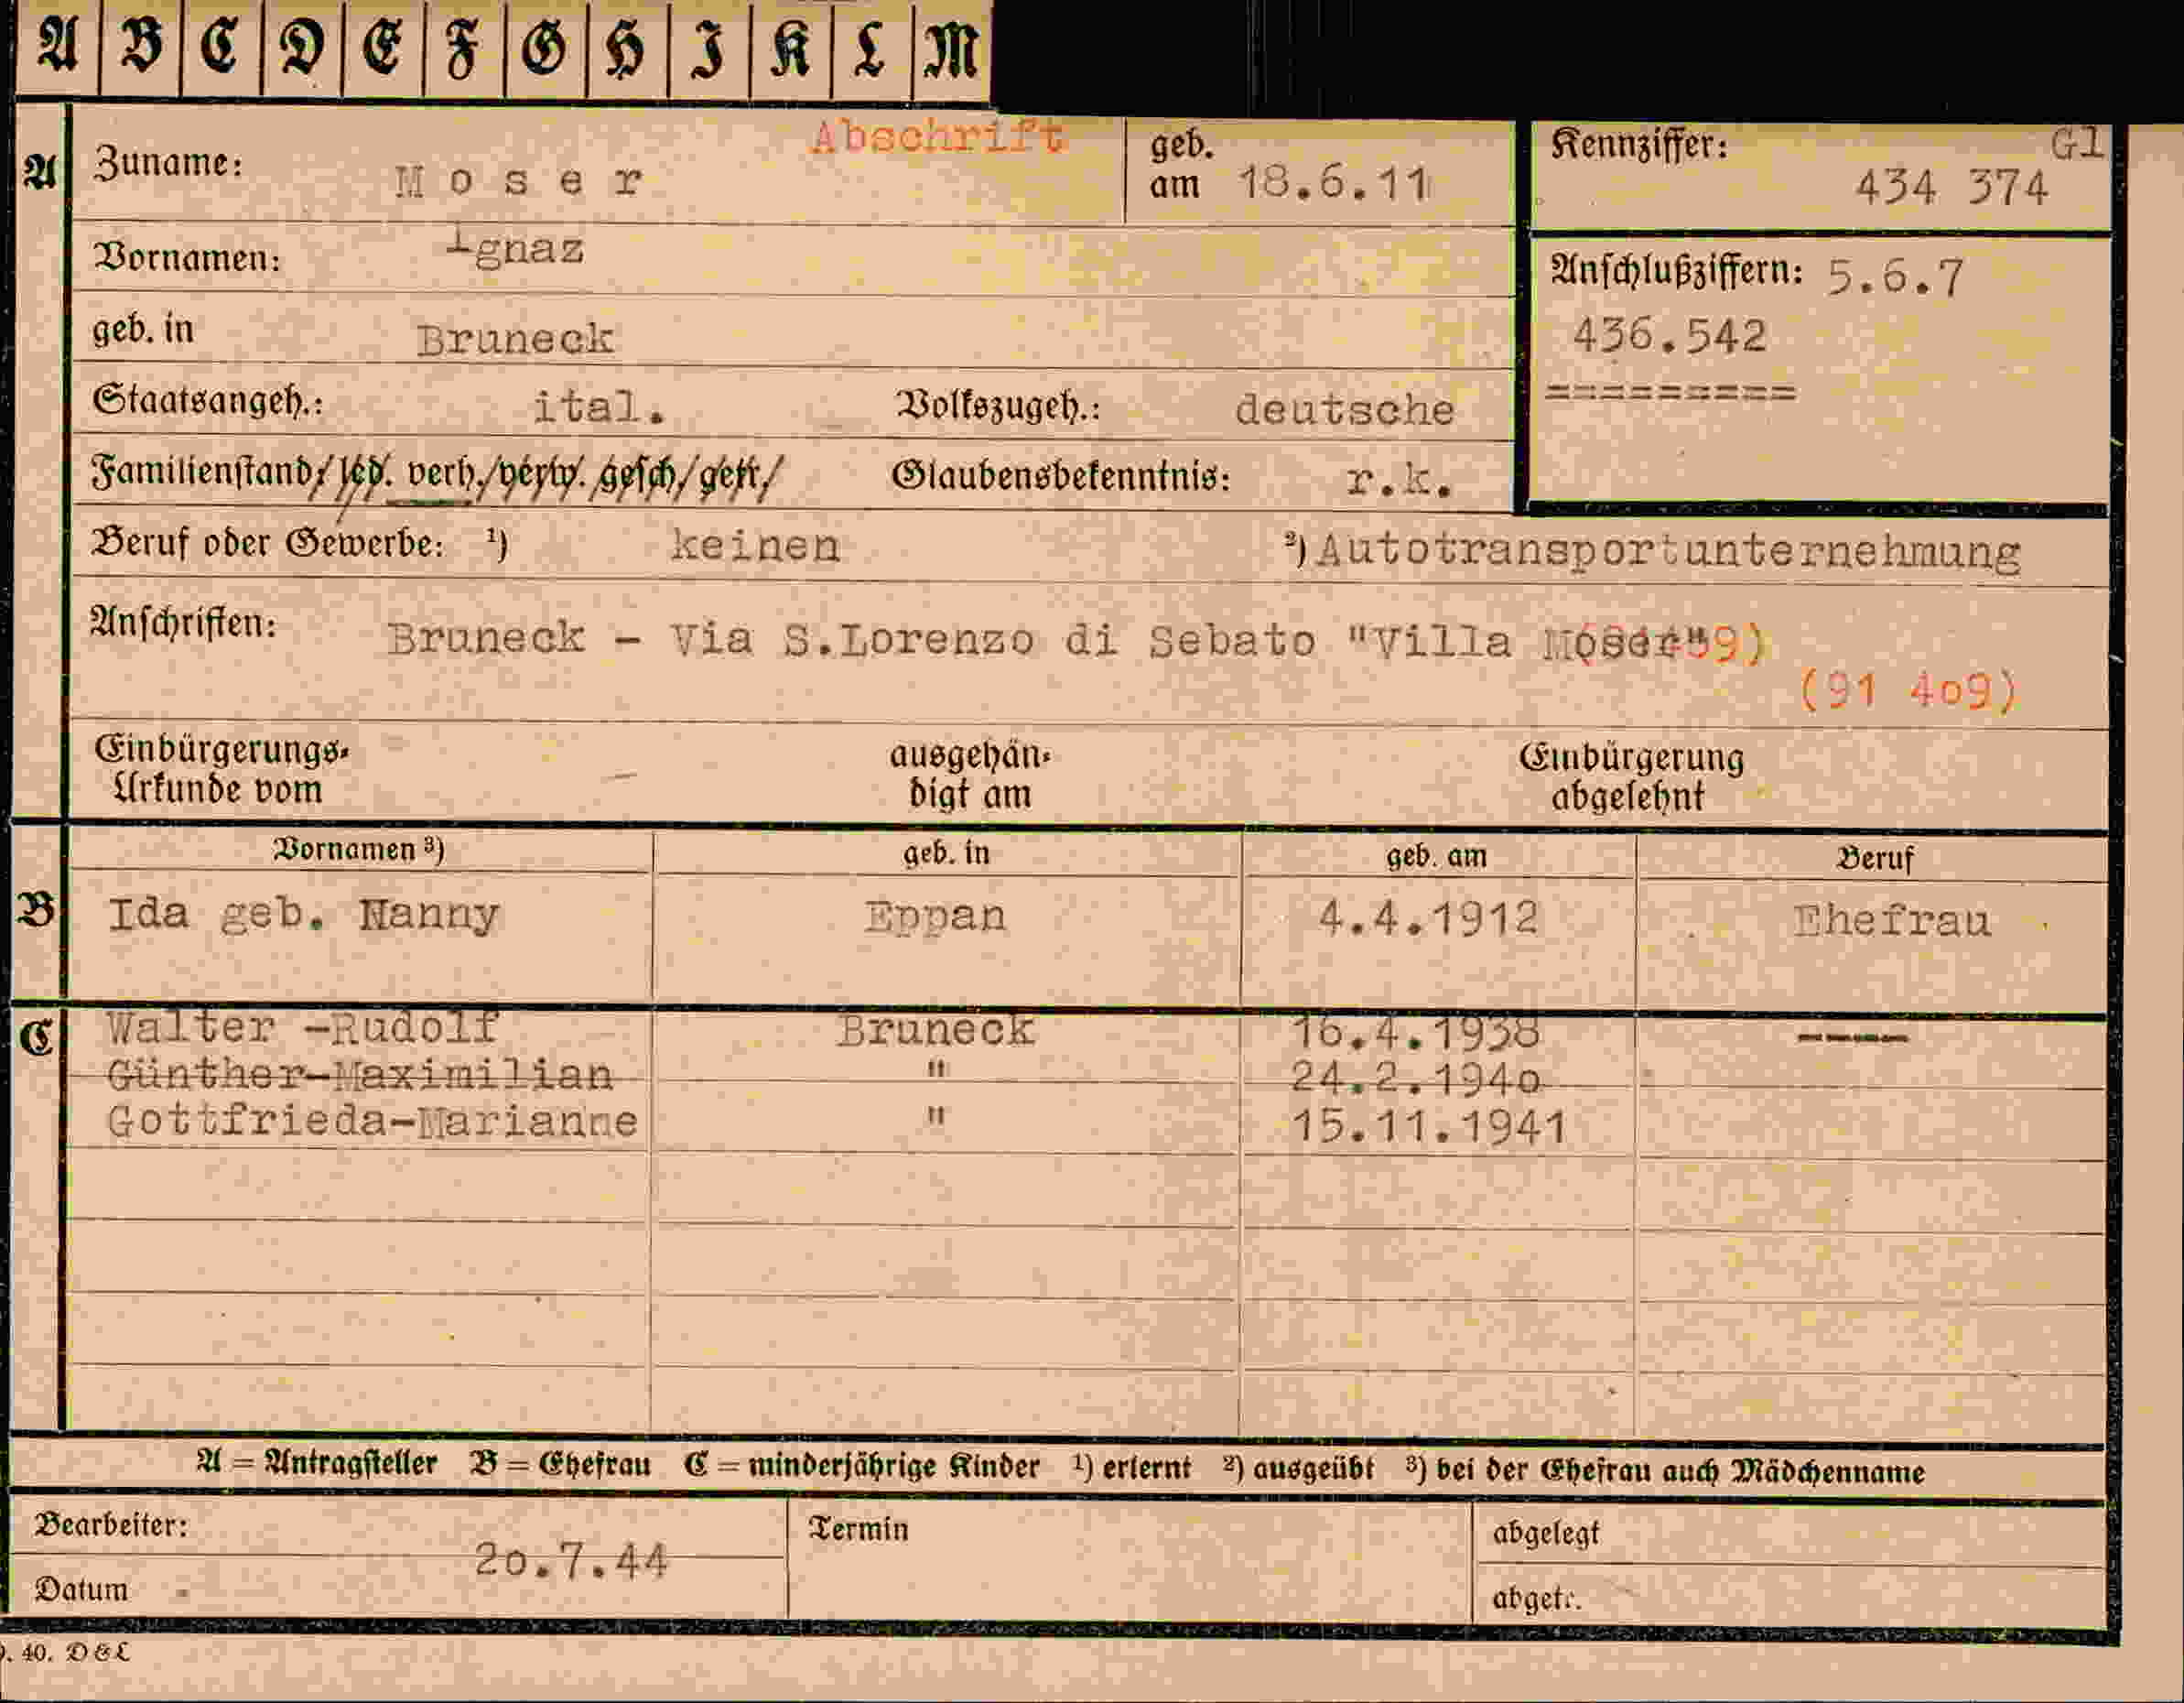 A B C D E F G H I K L M
Abschrift
A Zuname: Moser geb. am 18.6.11
Kennziffer: Gl
434 374
Vornamen: Ignaz
Anschlußziffern: 5.6.7
436.542
=========
geb. in Bruneck
Staatsangeh.: ital. Volkszugeh.: deutsche
Familienstand/led. verh./verw. gesch/getr/ Glaubensbekenntnis: r.k.
Beruf oder Gewerbe: ¹) keinen ²) Autotransportunternehmung
Anschriften: Bruneck - Via S.Lorenzo di Sebato "Villa Moser" 9)
(91 4o9)
Einbürgerungs-Urkunde vom ausgehändigt am Einbürgerung abgelehnt
Vornamen ³) geb. in geb. am Beruf
B Ida geb. Nanny Eppan 4.4.1912 Ehefrau
C Walter -Rudolf Bruneck 16.4.1938 -----
Günther-Maximilian " 24.2.194o
Gottfrieda-Marianne " 15.11.1941
A = Antragsteller B = Ehefrau C = minderjährige Kinder ¹) erlernt ²) ausgeübt ³) bei der Ehefrau auch Mädchenname
Bearbeiter: Termin abgelegt
2o.7.44
Datum abgetr.
. 40. D&L